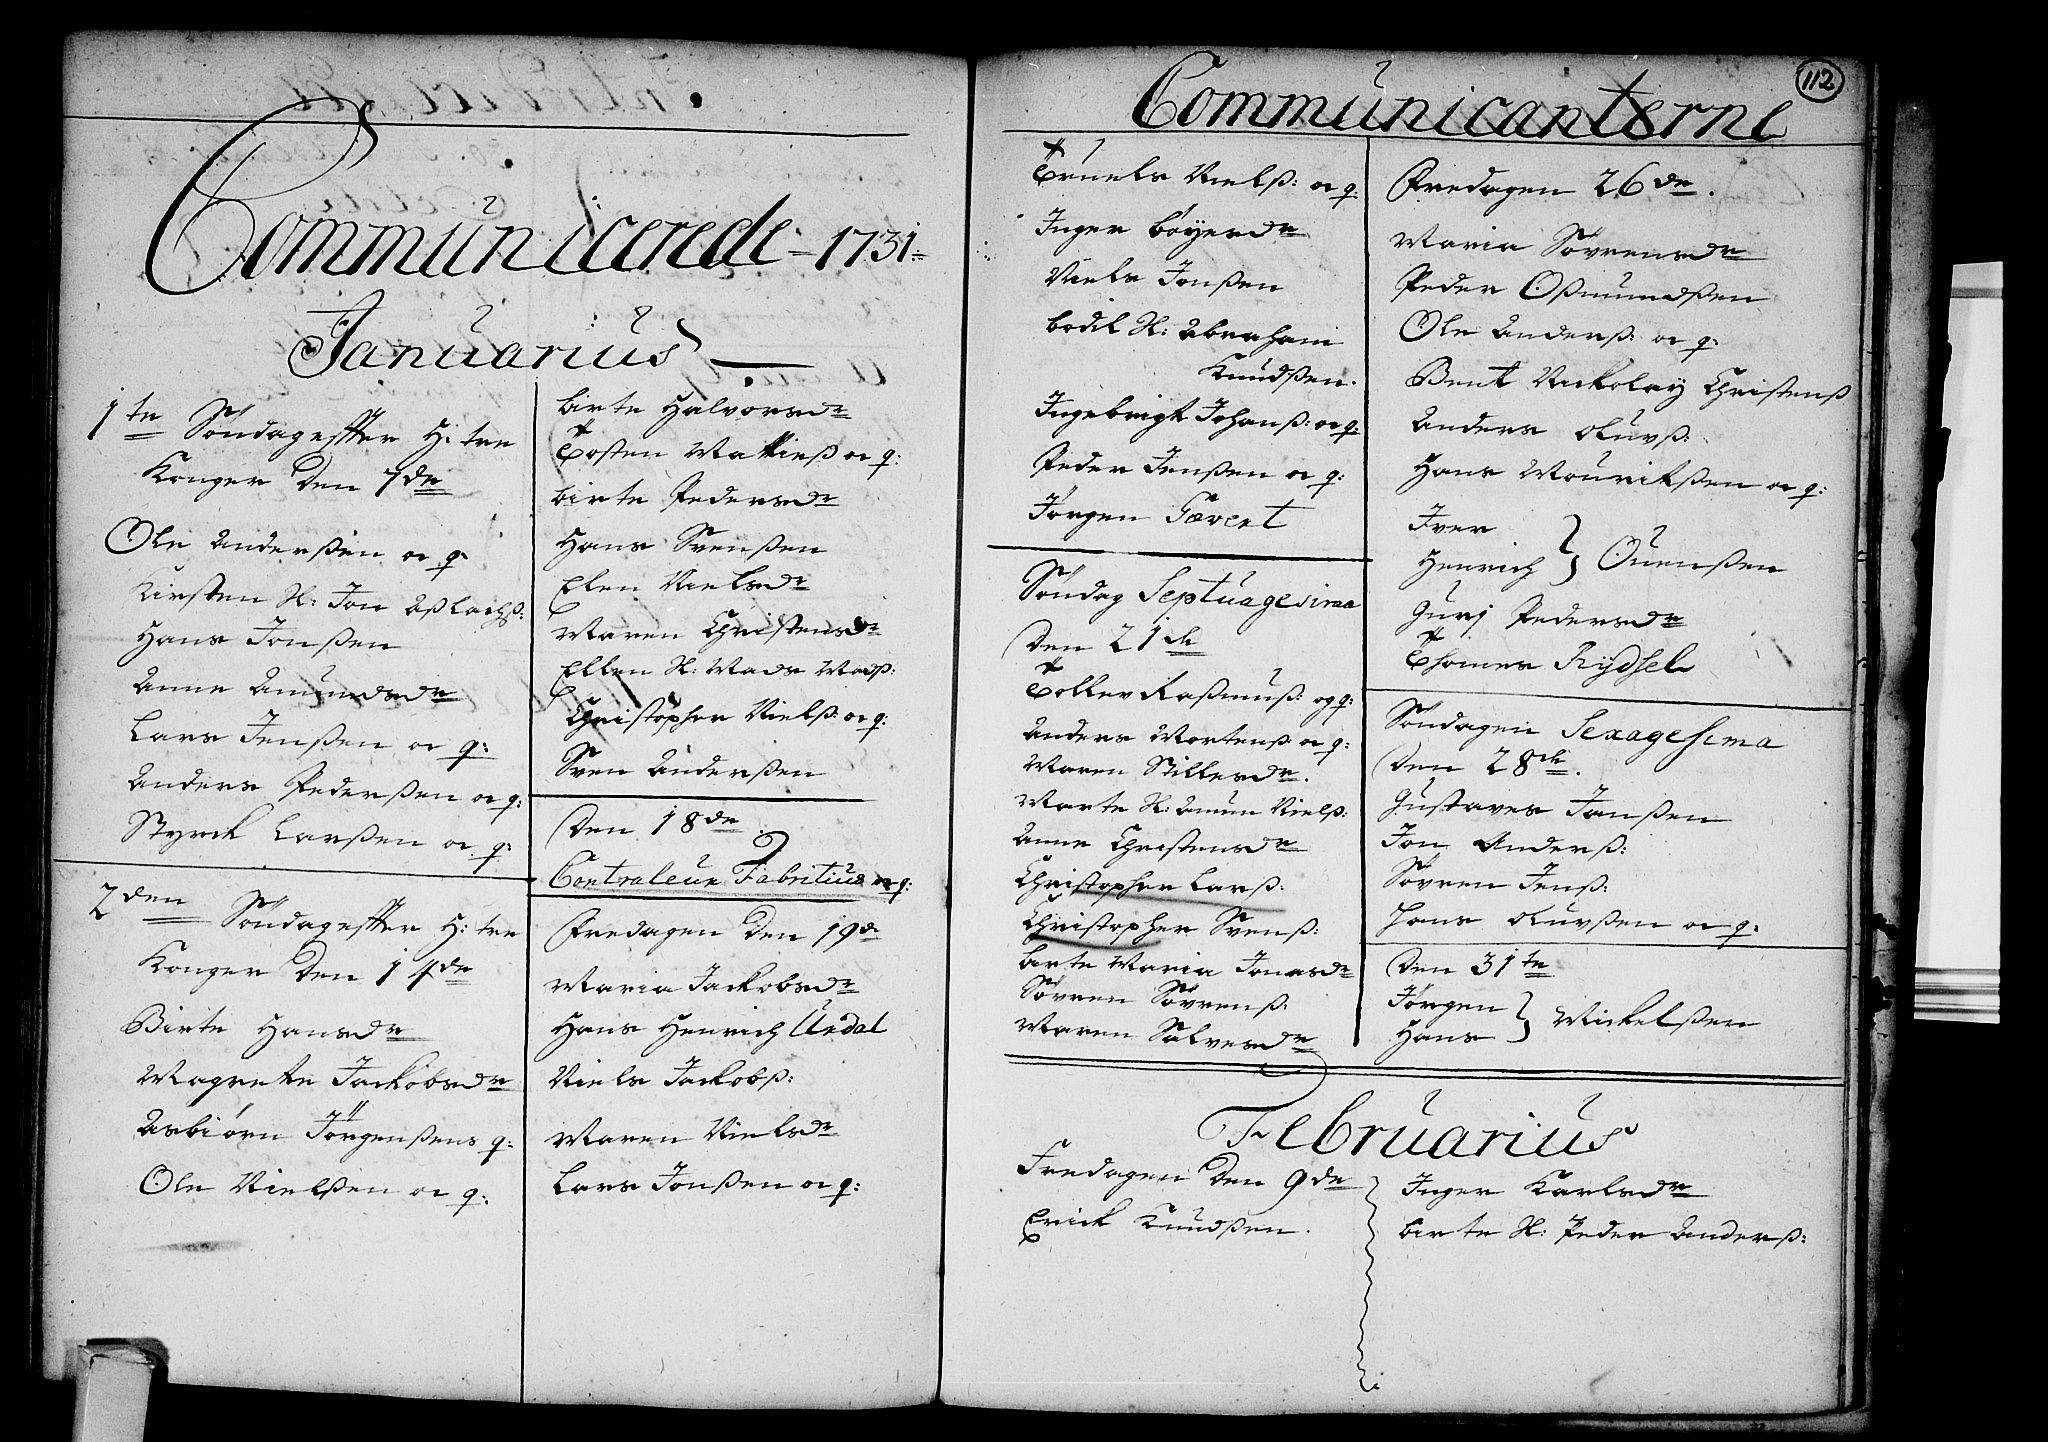 Communicerede 1731
Januarius
1te Söndag effter H: tre
Konger Den 7de
Ole Anderßen oc q:
Kirsten H: Jon Aßlachß:
Hans Jonßen
Anne Amundsdr
Lars Jenßen oc q:
Anders Pederßen oc q:
Styrck Larßen oc q:
2den Söndag effter H: tre
Konger Den 14de
Birte Hansdr
Magrette Jackobsdr
Asbiørn Jörgenßens q:
Ole Nielßen oc q:
birte Halvorsdr
Tosten Mattieß oc q:
birte Pedersdr
Hans Svenßen
Elen Nielsdr
Maren Christensdr
Ellen H: Mads Madß:
Christopher Nielß: oc q:
Sven Anderßen
Den 18de
Contraleur Fabritius oc q:
Fredagen Den 19de
Maria Jackobsdr
Hans Henrich Urdal
Niels Jackobß:
Maren Nielsdr
Lars Jonßen oc q:
Communicanterne
112
Truels Nielß: oc q:
Inger böyesdr
Niels Jonßen
bodil H: Abraham
Knudßen.
Ingebrigt Johanß: oc q:
Peder Jenßen oc q:
Jörgen Tævert
Söndag Septuagesima
Den 21de
Tollev Raßmuß: og q:
Anders Mortenß oc q:
Maren Stillesdr.
Marte H: Amun Nielß:
Anne Christensdr
Christopher Larß:
Christopher Svenß:
birte Maria Jonasdr
Sövren Sövrenß:
Maren Salvesdr
Fredagen 26de.
Maria Sövrensdr
Peder Oßmundßen
Ole Anderß: oc q:
Bent Nickolay Christenß
Anders oluvß:
Hans Mouritßen oc q:
Iver
Henrich } Ouenßen
Guri Pedersdr
Thomes Rydsel
Söndagen Sexagesima
Den 28de.
Gustaves Jonßen
Jon Anderß:
Sövren Jenß:
Hans oluvßen oc q:
Den 31te
Jörgen
Hans } Mickelßen
Februarius
Fredagen Den 9de
Erick Knudßen.
Inger Karlsdr
birte H: Peder Anderß: